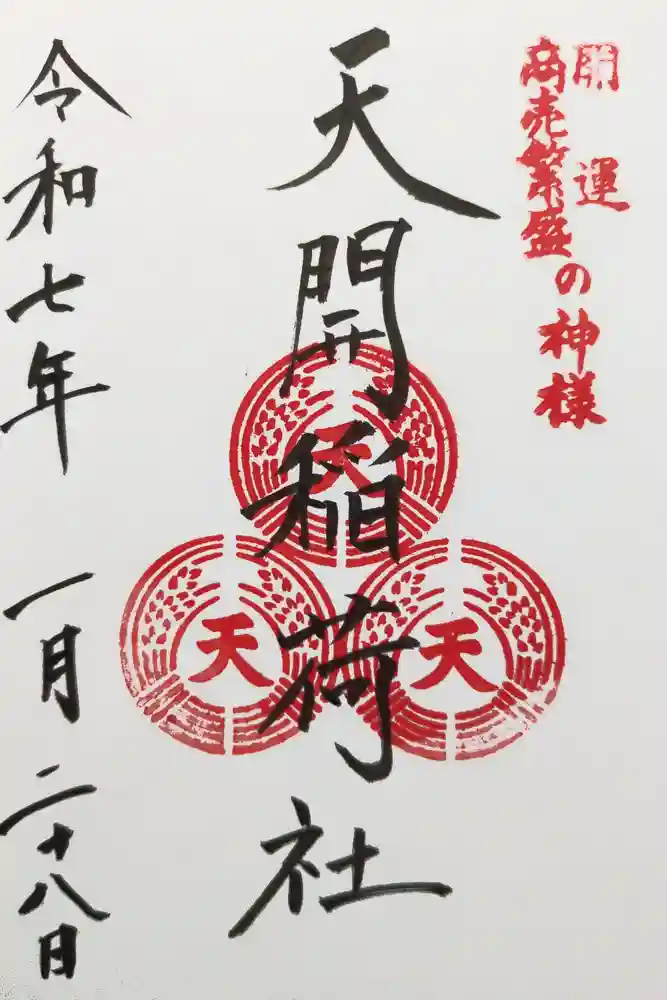 開運
商売繁盛
の神様
天開稲荷社
天
天
天
令和七年 一月 二十八日